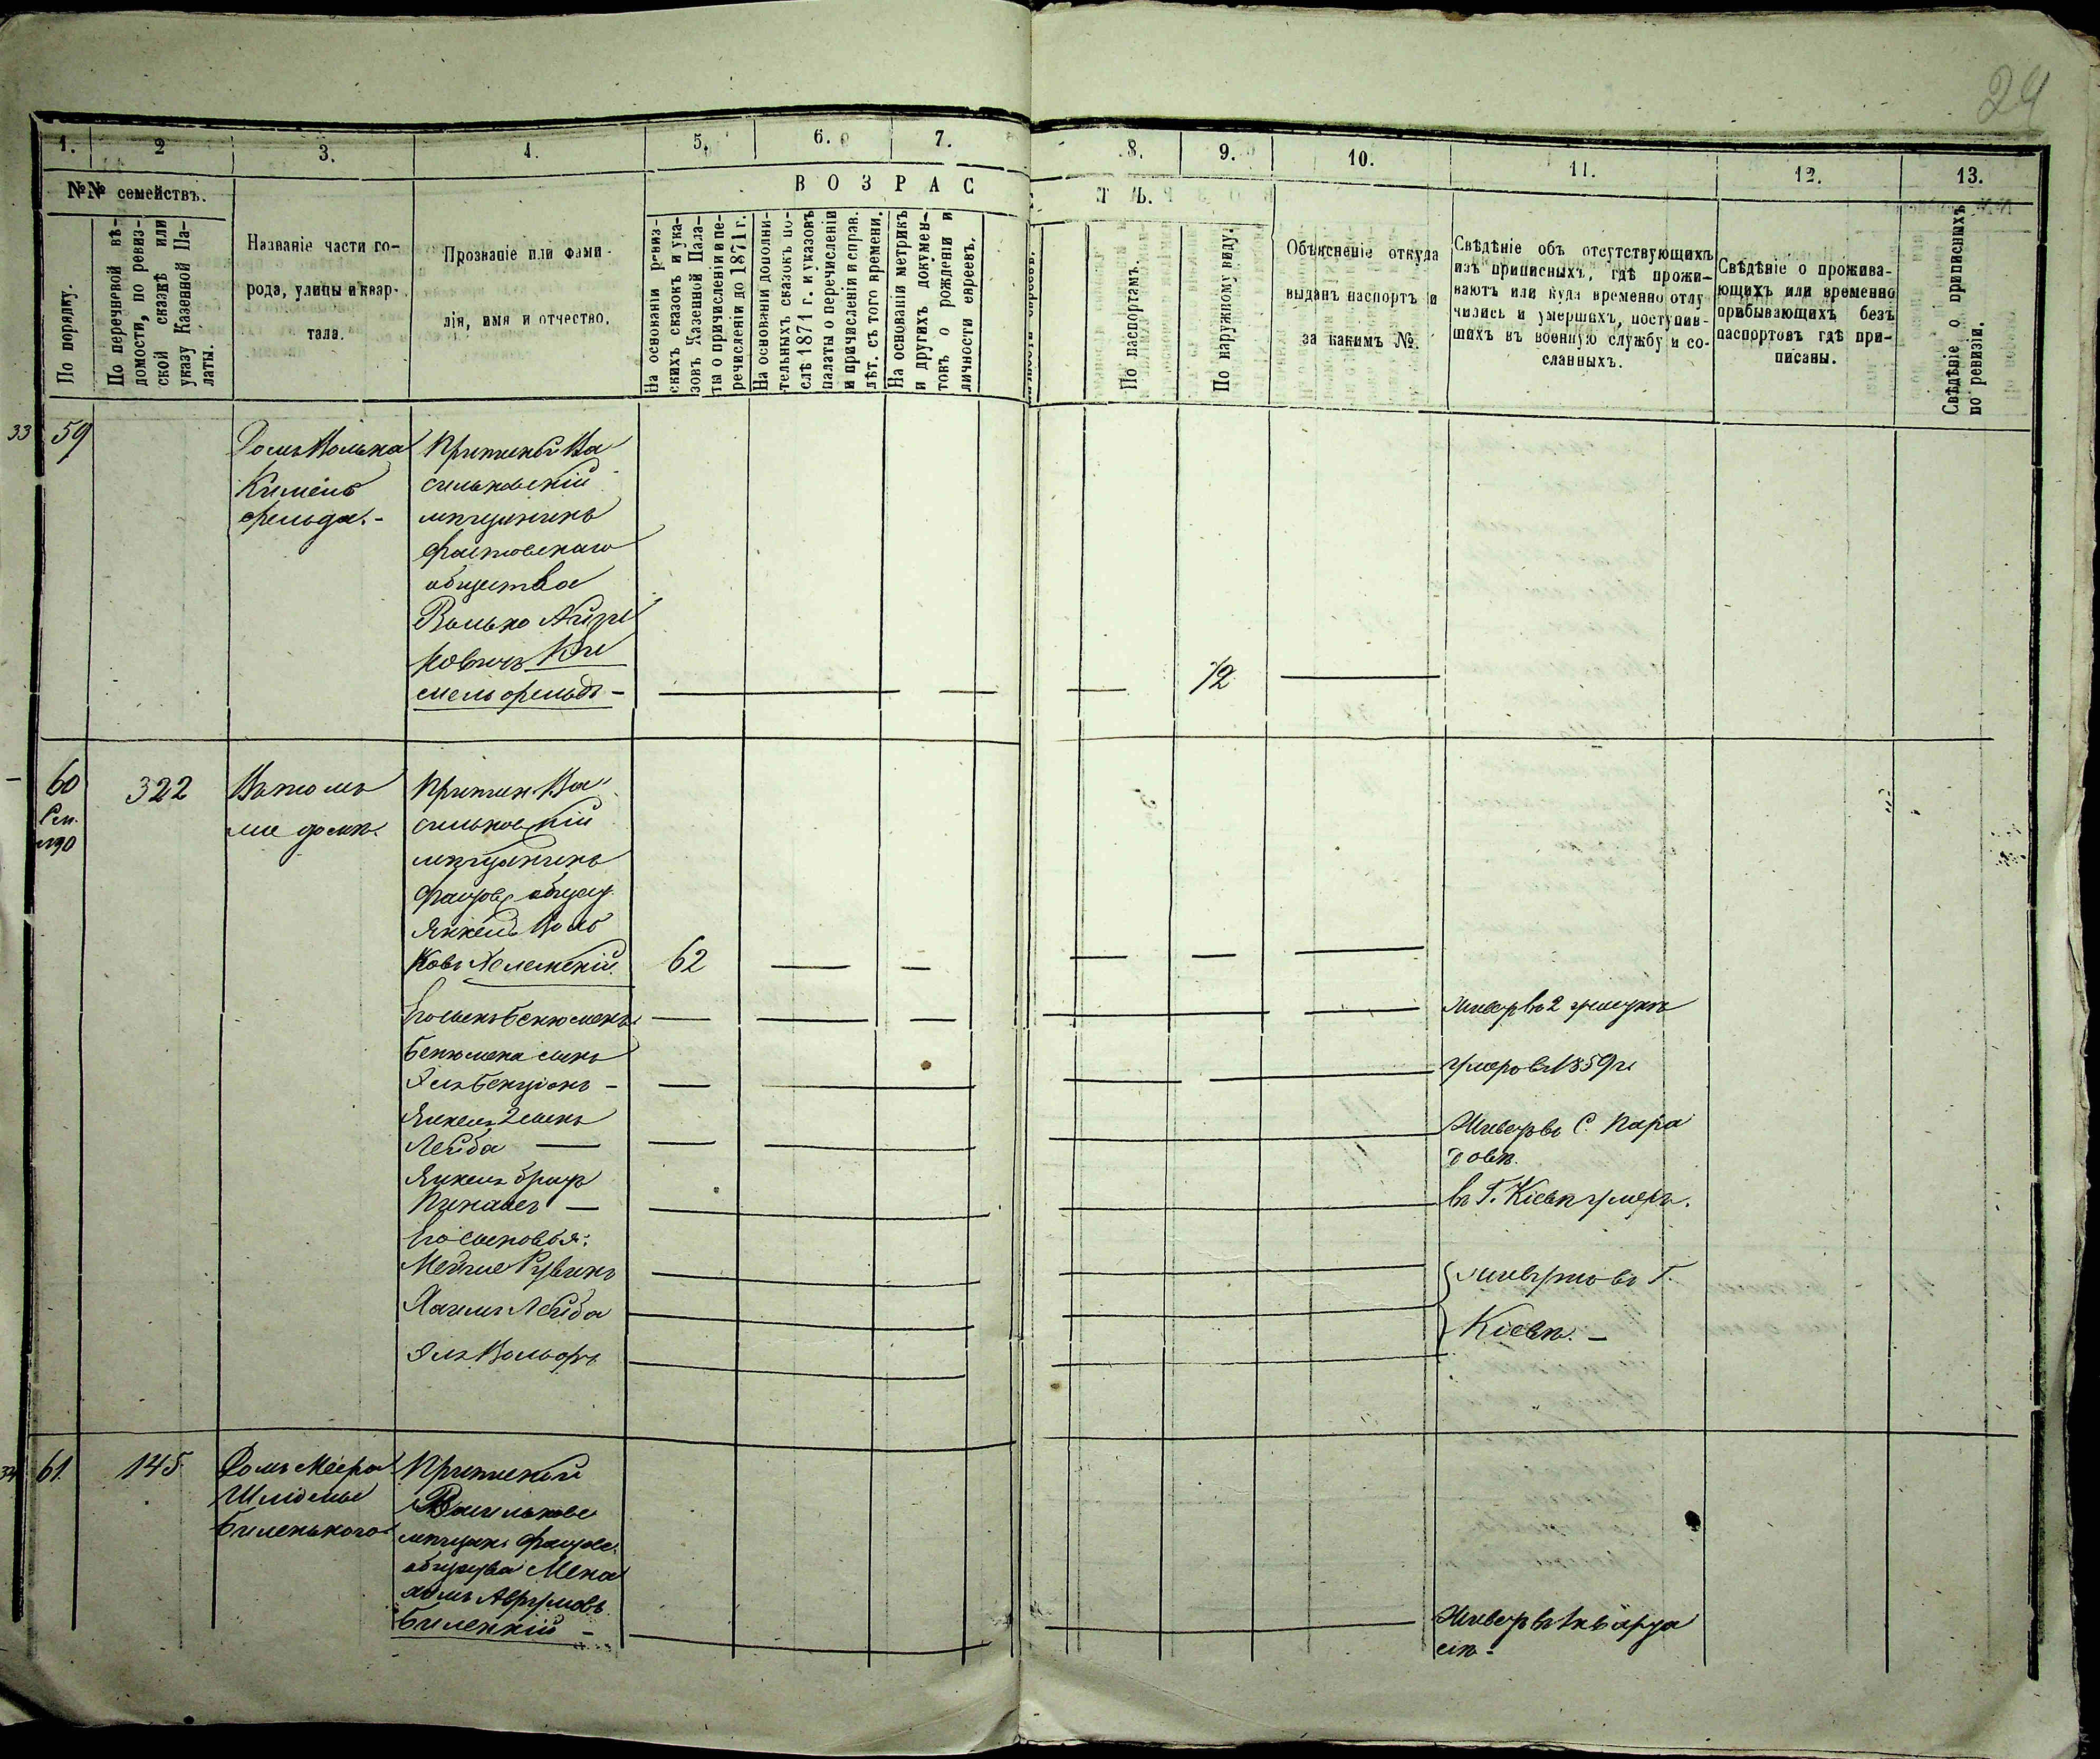 29
1.
2
3.
4.
5.
6.
7.
8.
9.
10.
11.
12.
13.
№№ семействъ.
По порядку.
По перечневой вѣ-
домости, по ревиз-
ской сказкѣ или
указу Казенной Па-
латы.
Названіе части го-
рода, улицы и квар-
тала.
Прозваніе или фами-
лія, имя и отчество.
ВОЗРАС
ТЪ.
На основаніи ревиз-
скихъ сказокъ и ука-
зовъ Казенной Пала-
ты о причисленіи и пе-
речисленіи до 1871 г.
На основаніи дополни-
тельныхъ сказокъ по-
слѣ 1871 г. и указовъ
палаты о перечисленіи
и причисленіи и справ.
лѣт. съ того времени.
На основаніи метрикъ
и других докумен-
товъ о рожденіи и
личности евреевъ.
По паспортамъ.
По наружному виду.
Объясненіе откуда
выданъ паспортъ и
за какимъ №.
Свѣдѣніе объ отсутствующихъ
изъ приписныхъ, гдѣ прожи-
ваютъ или куда временно отлу
чились и умершихъ, поступив-
шихъ въ военную службу и со-
сланныхъ.
Свѣдѣніе о прожива-
ющихъ или временно
прибывающихъ безъ
паспортовъ гдѣ при-
писаны.
Свѣдѣніе о приписныхъ
по ревизіи.
33
59
Домъ Волька
Кимель
фельда.-
Приписной Ва
сильковскій
мѣщанинъ
Фастовскаго
общества
Волько
ковичъ Ки
мельфельдъ -
72
60
322
Въ томъ
же домѣ.
Припис. Ва
сильковскій
мѣщанинъ
Фастов. общест.
Янкель Воль
ковъ
62
Его сынъ Бенюменъ
Живетъ въ 2 участкѣ
Бенюмена сынъ
Эля Бенціонъ -
умеръ въ 1859 г.
Янкеля 2 сынъ
Лейба —
Живетъ въ С. Пара
довѣ.
Янкеля братъ
Пинхасъ —
въ Г. Кіевѣ умеръ.
Его сыновья:
Мейше Рувинъ
Хаимъ Лейба
Эля Вольфъ
живутъ въ Г.
Кіевѣ. -
34
61
145
Домъ Меера
Шлiомы
Биленького
Приписной
Васильков
мѣщан. Фастов.
общества Мена
химъ Аврумовъ
Биленкій -
Живетъ въ 1 кварта
лѣ -